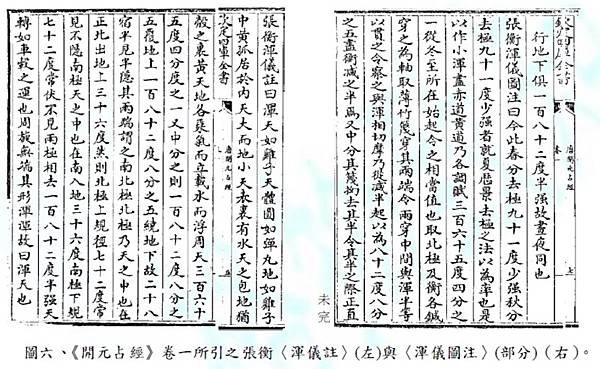 欽定四庫全書
卷一
行地下俱一百八十二度半强故晝夜同也
張衡渾儀圖注曰今此春分去極九十一度少强秋分
去極九十一度少强者就夏厯景去極之法以為率也是
以作小渾盡赤道黄道乃各調賦三百六十五度四分之
一從冬至所在始起令之相當值也取北極及衡各鍼
穿之為軸取薄竹篾穿其兩端令兩穿中間與渾半等
以貫之令察之與渾相切摩乃從減半起以為八十二度八分
之五盡衡減之半焉又中分其篾拗去其半令其半之際正直
唐開元占經
上
未完
張衡渾儀註曰渾天如雞子天體圓如彈丸地如雞子
中黄孤居於内天大而地小天表裏有水天之包地猶
殼之裹黄天地各乗氣而立載水而浮周天三百六十
五度四分度之一又中分之則一百八十二度八分之
五覆地上一百八十二度八分之五繞地下故二十八
宿半見半隱其兩端謂之南北極北極乃天之中也在
正北出地上三十六度然則北極上規徑七十二度常
見不隱南極天之中也在南入地三十六度南極下規
七十二度常伏不見兩極相去一百八十二度半强天
轉如車轂之運也周旋無端其形渾渾故曰渾天也
欽定四庫全書
唐開元占經
五
圖六、《開元占經》卷一所引之張衡〈渾儀註〉(左)與〈渾儀圖注〉(部分)(右)。